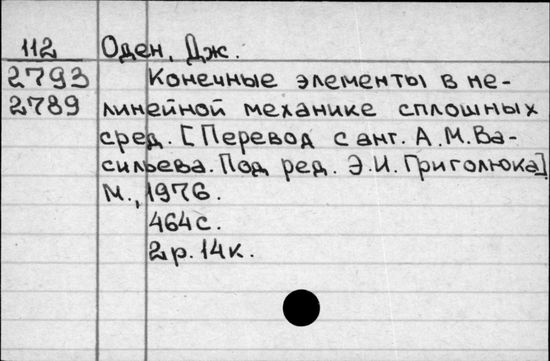 112 Оден, Дж.
2793 Конечные элементы в не-
2789 линейной механике сплошных
сред. [Перевод с анг. А.М.Ва-
сильева. Под ред. Э.И.Григолюка]
М., 1976.
464с.
2р.14к.